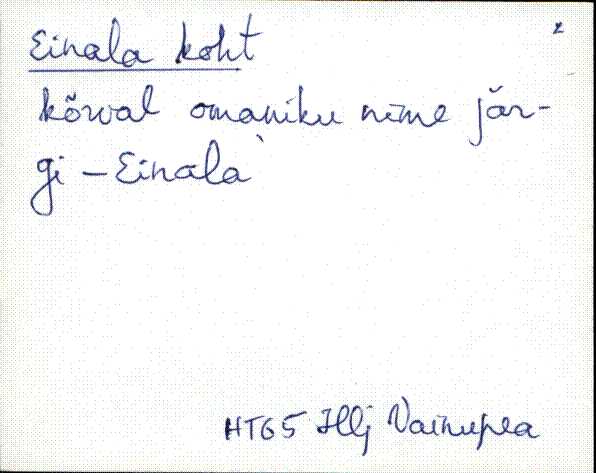 Einala koht
kõrval omaniku nime jär-
gi - Einala
HTG5 Hlj Vainupea